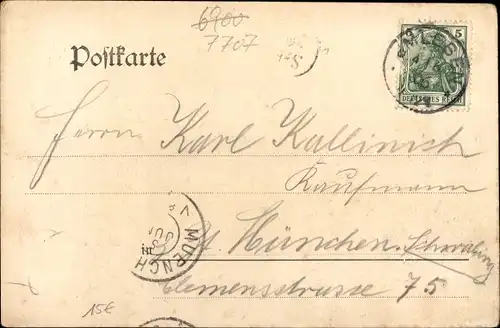 6900
7707
Postkarte
5
DEUTSCHES REICH
Herrn Karl Kallinich
Kaufmann
in
München-Schwabing
MUENCH
Clemensstrasse 75
15€